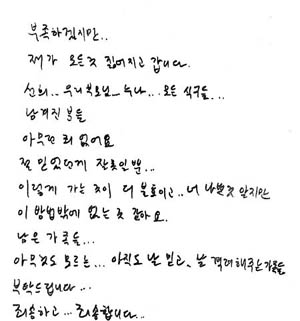 부족하겠지만..
제가 모든것 짊어지고 갑니다.
신희... 우리 부모님... 누나... 모든 식구들...
남겨진 분들
아무런 죄 없어요
전 믿었던게 잘못일 뿐...
이렇게 가는 것이 더 불효이고.. 더 나쁜것 알지만
이 방법밖에 없는 것 같아요.
남은 가족들...
아무것도 모르는... 아직도 날 믿고.. 날 격려해주는 가족들
부탁드립니다...
죄송하고... 죄송합니다...